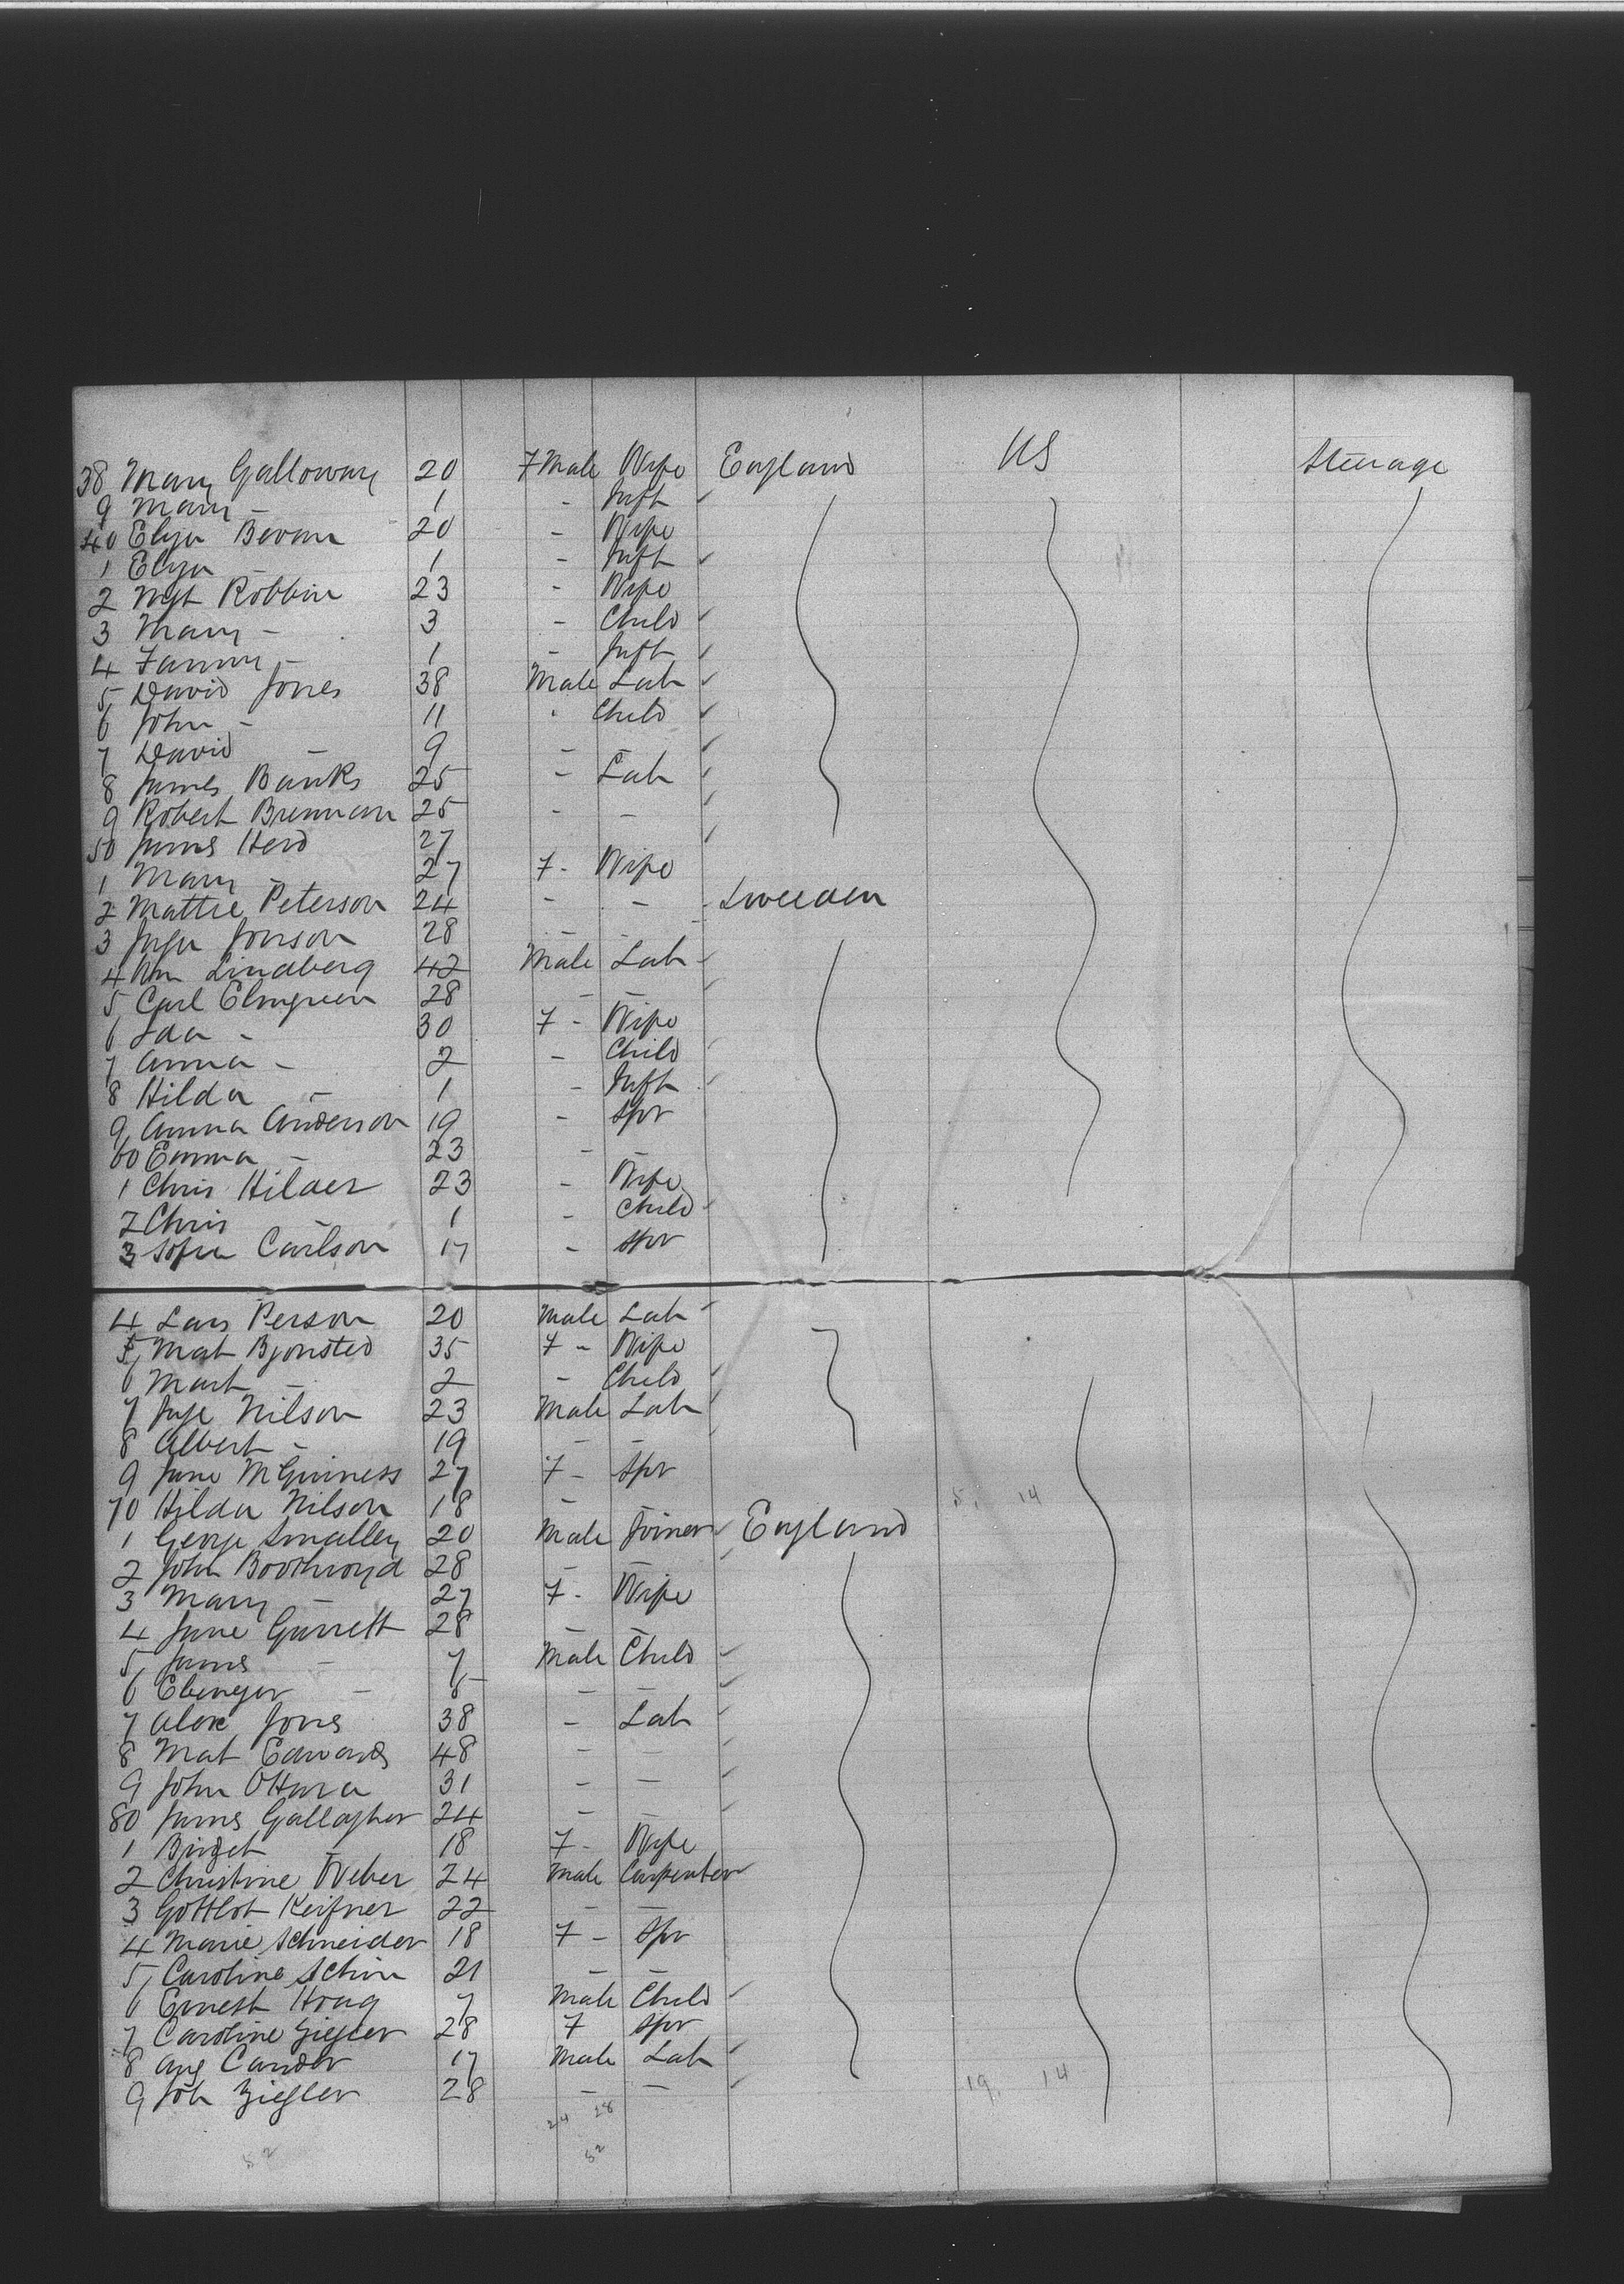 38 Mary Galloway 20 Female Wife England US Steerage
9 Mary - 1 - Inft
40 Eliza Bevan 20 - Wife
1 Eliza - 1 - Inft
2 Mgt Robbin 23 - Wife
3 Mary - 3 - Child
4 Fanny - 1 - Inft
5 David Jones 38 Male Lab
6 John - 11 - Child
7 David - 9 - -
8 James Banks 25 - Lab
9 Robert Brennan 25 - -
50 James Herd 27
1 Mary - 27 F - Wife
2 Mattie Peterson 24 - - Sweeden
3 Jonson 28 - -
4 Lindberg 42 Male Lab
5 Carl Elmgreen 28 - -
6 Ida - 30 F - Wife
7 Anna - 2 - Child
8 Hilda - 1 - Inft
9 Anna Anderson 19 - Spr
60 Emma - 23 - -
1 Chris Hilder 23 - Wife
2 Chris - 1 - Child
3 Sofia Carlson 17 - Spr
4 Lars Person 20 Male Lab
5 Mat Bjonsted 35 F - Wife
6 - 2 - Child
7 Nilson 23 Male Lab
8 Albert - 19 - -
9 Jane McGuiness 27 F - Spr
70 Hilda Nilson 18 - -
1 George Smalley 20 Male Joiner England
2 John Boothroyd 28
3 Mary - 27 F - Wife
4 Jane Garrett 28 - -
5 James - 7 Male Child
6 Ebenezer - 5 - -
7 Alex Jones 38 - Lab
8 Mat Edwards 48 - -
9 John OHara 31 - -
80 James Gallagher 24 - -
1 Bridget - 18 F - Wife
2 Christine Weber 24 Male Carpenter
3 Gottlob Keifner 22 - -
4 Marie Schneider 18 F - Spr
5 Caroline 21 - -
6 Ernest Hoag 7 Male Child
7 Caroline Ziegler 28 F Spr
8 Aug 17 Male Lab
9 Joh Ziegler 28 - -
19. 14
24 28
52 52